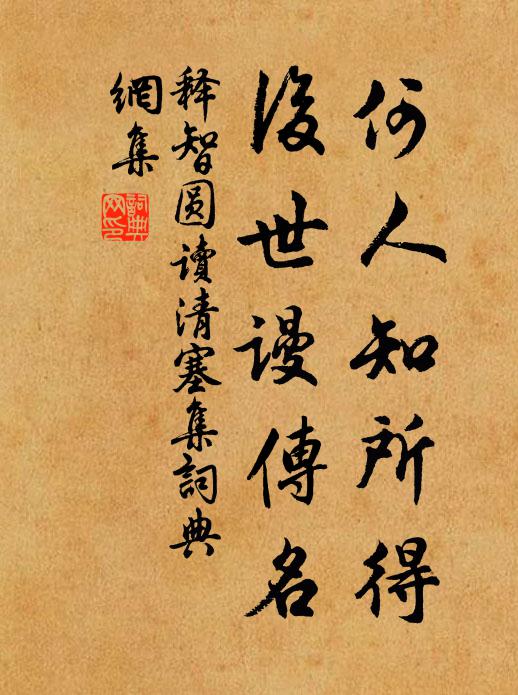 何人知所得
後世謾傳名
释智圆讀清塞集詞典
網集
詞典網印